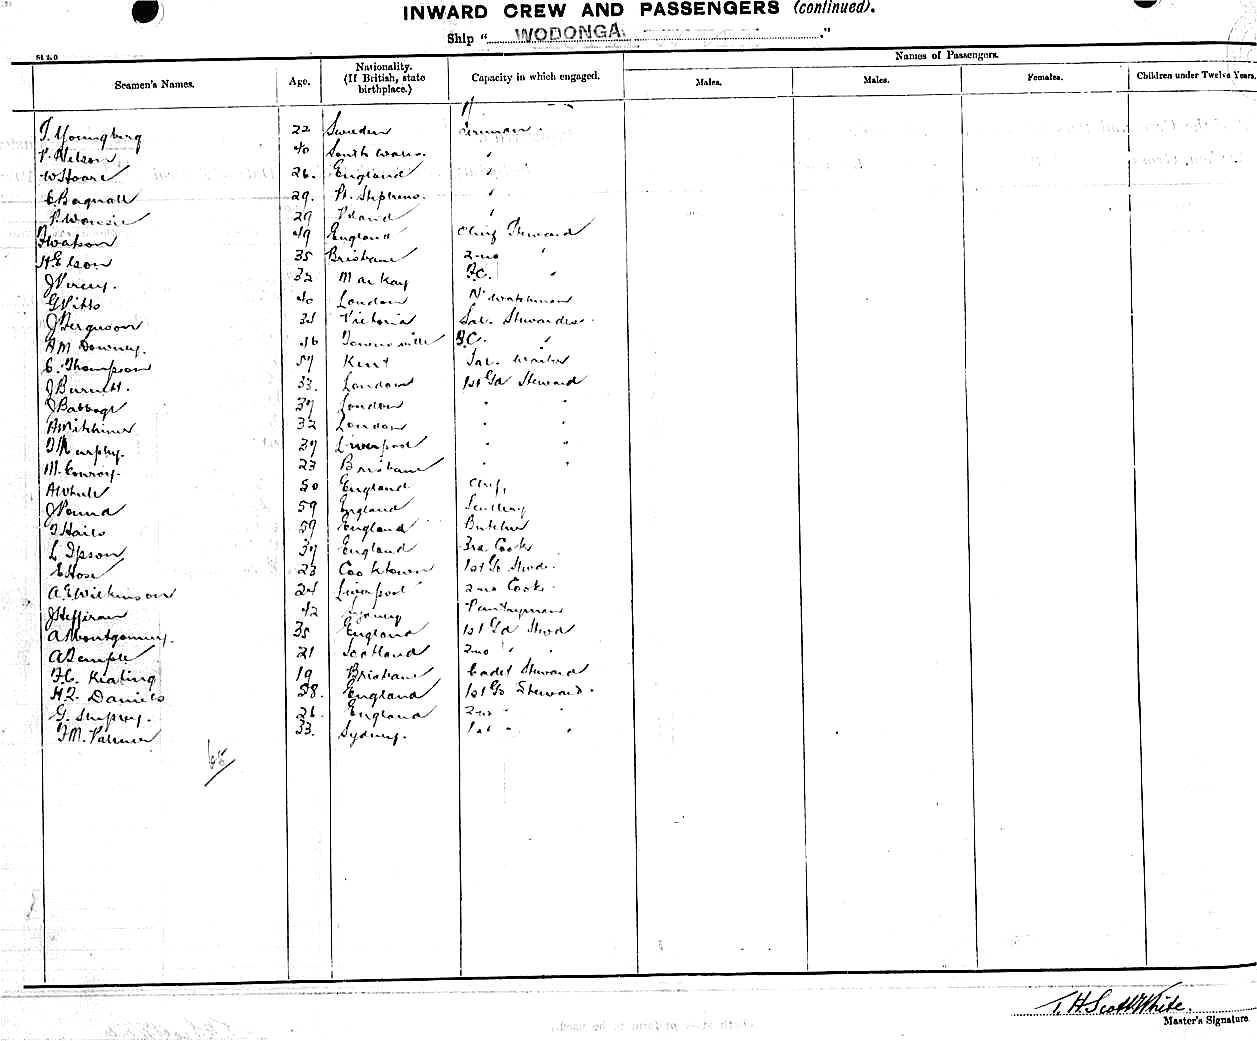 INWARD CREW AND PASSENGERS (continued).
Ship "WODONGA."
Names of Passengers.
Seamen's Names. Age. Nationality. (If British, state birthplace.) Capacity in which engaged. Males. Males. Females. Children under Twelve Years.
T. Youngberg 22 Sweden Fireman.
P. Nelson 40 South Wales. "
W Hoare 26. England "
C. Bagnall 29. Pt. Stephens. "
P. 29
F Watson 49 England Chief Steward
H Elson 35 Brisbane 2nd "
J Percy. 32 Mackay F.C. "
G Pitts 40 London N. Watchman
J Ferguson Victoria Sal. Stewardess.
A M Downey. 46 Townsville F.C. "
C. Thompson 57 Kent Sal. Waiter
J Burnett. 33. London 1st Gd Steward
J Babbage 37 London " "
A Mitchiner 32 London " "
T Murphy. 37 Liverpool " "
M. Conroy. 23 Brisbane " "
A White 50 England Chef,
J Pound 59 England Scullery
T Hails 59 England Butcher
L Ipson 37 England 3rd Cook
E Hose 23 Cooktown 1st Gd Stwd.
A. E Wilkinson 24 Liverpool 2nd Cook.
J Heffiran 42 Sydney Pantryman
A Montgomery. 35 England 1st Gd Stwd
A Temple 21 Scotland 2nd " "
F. C. Keating 19 Brisbane Cadet Steward
H. Daniels 58. England 1st Gd Steward.
G. 26. England 2nd " "
F. M. Palmer 33. Sydney. 1st " "
68
T. H. Scott White.
Master's Signature.